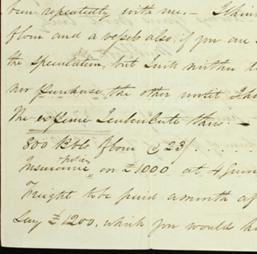 been repeatedly with me. - I
flour and a vessel also, if you are
the speculation, but
nor purchase the other until I
The
800 Bbls flour @ 23/.
Insurance Policy on £1000 at 4
Freight to be paid a month af
Say £1200. which you would h